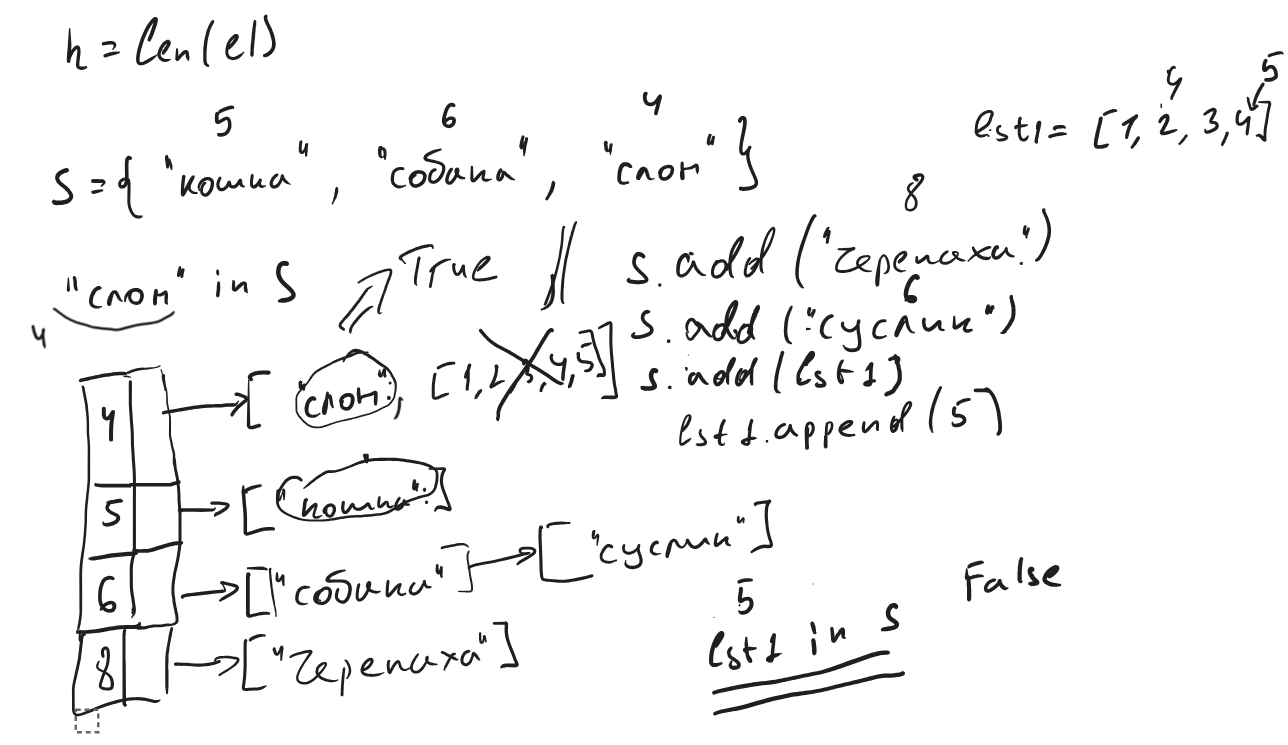 h = len(el)
5 6 4
S = { "кошка", "собака", "слон" }
4 5
lst1 = [1, 2, 3, 4]
"слон" in S
4
True
8
s.add("черепаха")
6
s.add("суслик")
s.add(lst1)
lst1.append(5)
4 ["слон", [1, 2, 3, 4, 5]]
5 ["кошка"]
6 ["собака"] ["суслик"]
8 ["черепаха"]
5
lst1 in s
False